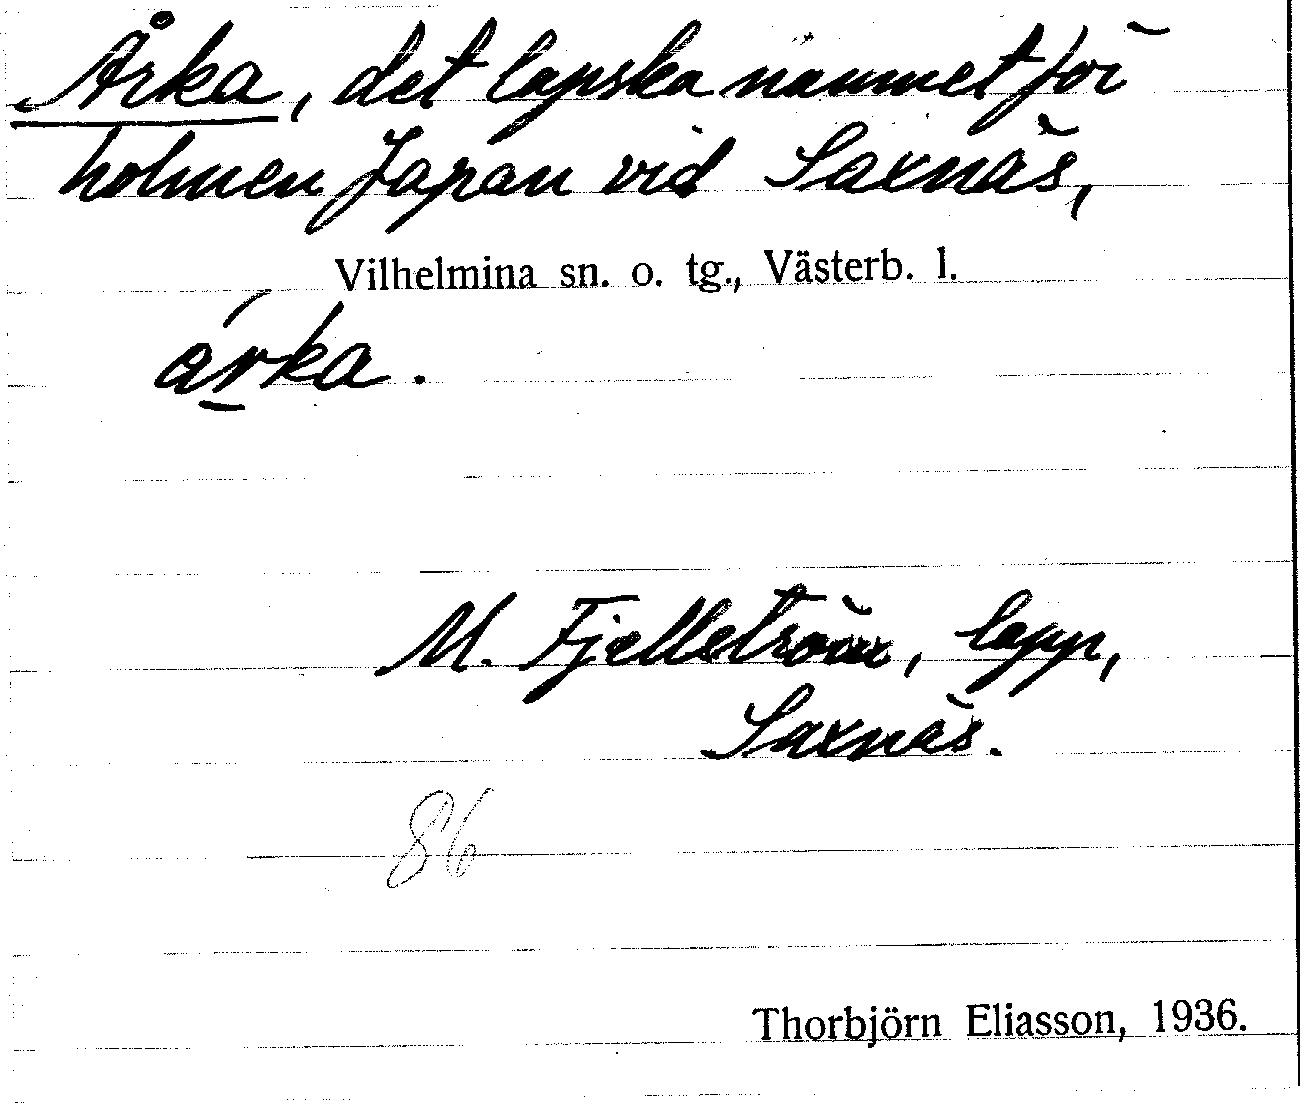 Årka, det lapska namnet för
holmen Japan vid Saxnäs,
Vilhelmina sn. o. tg., Västerb. l.
árka.
M. Fjellström, lapp,
Saxnäs.
86
Thorbjörn Eliasson, 1936.